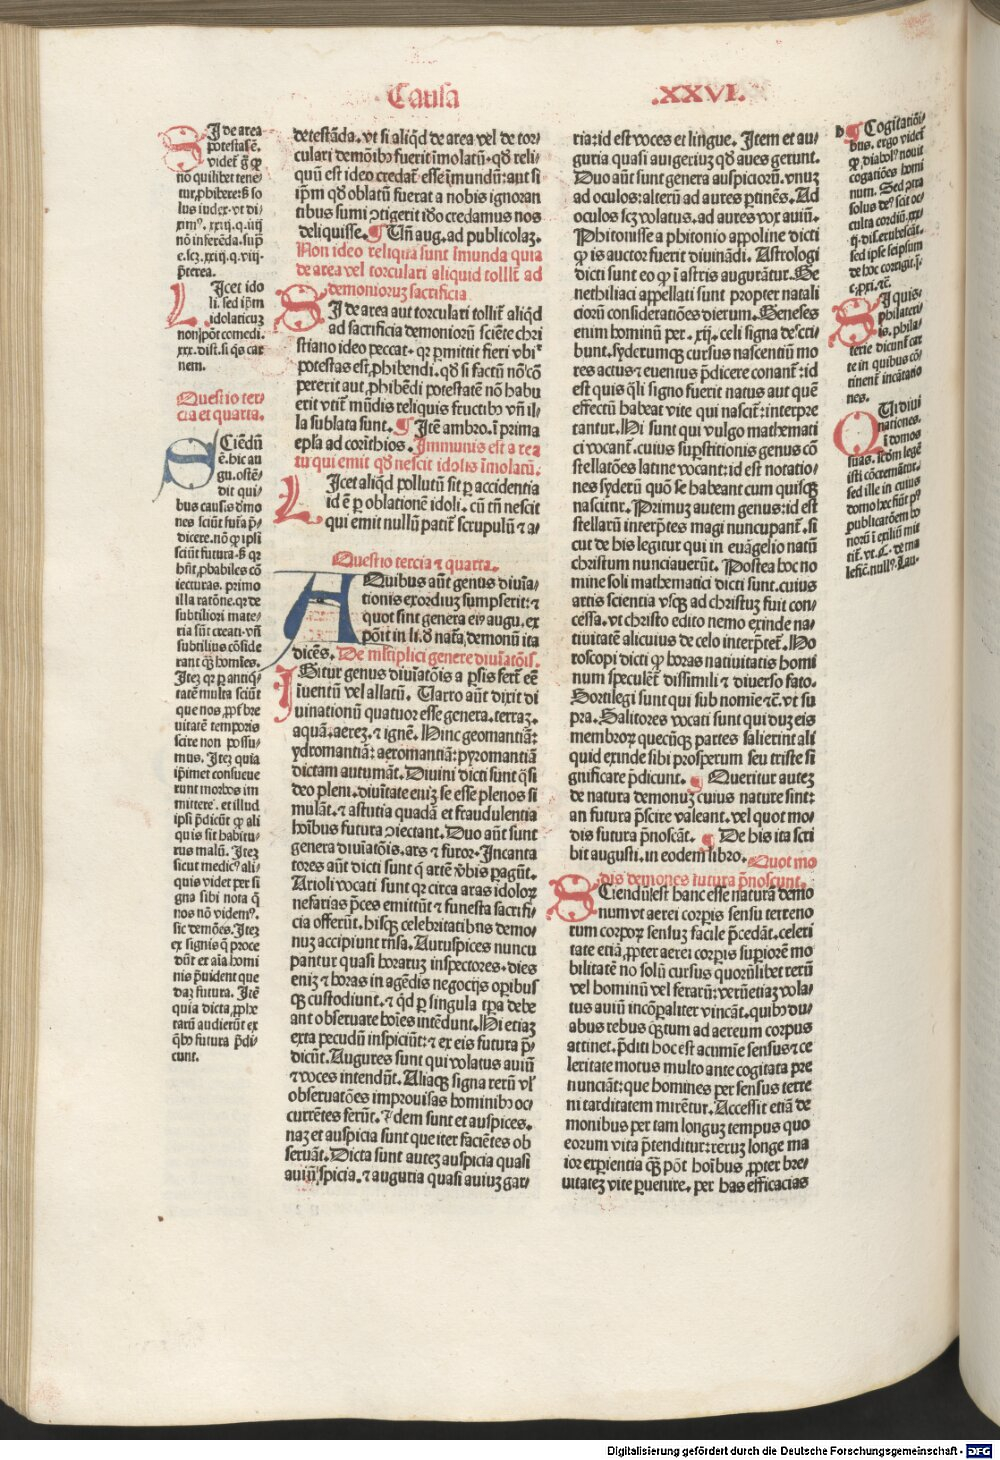 Causa
.XXVI.
SI de area
ptestas ē.
videt͛ ꝙ ꝗ
nō quilibet tene
tur ꝓhibere: s̄ so
lus iudex. vt di
nō inferēda. suꝑ
p̄terea.
LIcet ido
li. sed ip̄m
idolaticuꝫ
non pōt comedi.
xxx. dist. si qͥs car
nem.
Questio ter
cia et quarta.
SCiēdū
ē. hic au
gu. ostē⸗
dit qui⸗
bus causis dēmo
nes sciūt fut͛a p̄⸗
dicere. nō ꝙ ipsi
sciūt futura. s̄ qꝛ
hn̄t ꝓbabiles cō
iecturas. primo
illa ratōne. qꝛ de
subtiliori mate⸗
ria sūt creati. vn̄
subtilius cōside
rant qͣꝫ homīes.
Iteꝫ qꝛ ꝑ antiqͥ⸗
tatē multa sciūt
que nos ꝓpt͛ bre
uitatē temporis
scire non possu⸗
mus. Iteꝫ quia
ip̄imet consueue
runt morbos im
mittere. et illud
ipsi p̄dicūt ꝙ ali
quis sit habitu⸗
rus malū. Iteꝫ
sicut medicꝰ ali⸗
quis videt per si
gna sibi nota q̄
nos nō videmꝰ.
sic demōes. Iteꝫ
ex signis q̄ proce
dūt ex aīa homi
nis p̄uident que
daꝫ futura. Itē
quia dicta ꝓphe
tarū audierūt ex
qͥbꝰ futura p̄di⸗
cunt.
detestāda. vt si aliqͥd de area vel de tor⸗
culari demōibꝰ fuerit īmolatū. qd̓ reli⸗
quū est ideo credat͛ esse īmundū: aut si
ip̄m qd̓ oblatū fuerat a nobis ignoran
tibus sumi ↄtigerit iđo credamus nos
deliquisse. ¶ Un̄ aug. ad publicolaꝫ.
Non ideo reliqua sunt īmunda quia
de area vel torculari aliquid tollit͛ ad
demonioruꝫ sacrificia
SI de area aut torculari tollit͛ aliqͥd
ad sacrificia demoniorū sciēte chri
stiano ideo peccat. qꝛ ꝑmittit fieri vbiᵉ
potestas est ꝓhibendi. qd̓ si factū nō cō
pererit aut ꝓhibēdi potestatē nō habu
erit vtit͛ mūdis reliquis fructibꝰ vn̄ il⸗
la sublata sunt. ¶ Itē ambro. ī prima
epl̓a ad corīthios. Immunis est a rea
tu qui emit qd̓ nescit idolis īmolatū.
LIcet aliqͥd pollutū sit ꝑ accidentia
id ē ꝑ oblationē idoli. cū tn̄ nescit
qui emit nullū patit͛ scrupulū ⁊ a⸗
Questio tercia ⁊ quarta.
AQuibus aūt genus diuīa⸗
tionis exordiuꝫ sumpserit: ⁊
quot sint genera eiꝰ augu. ex
pōit in li. đ nat͛a demonū ita
dicēs. De ml̓tiplici genere diuīatōis.
IGitur genus diuīatōis a ꝑsis fert͛ eē
īuentū vel allatū. Uarro aūt dixit di
uinationū quatuor esse genera. terraꝫ.
aquā. aereꝫ. ⁊ ignē. Hinc geomantiā:
ydromantiā: aeromantiā: pyromantiā
dictam autumāt. Diuini dicti sunt qͣsi
deo pleni. diuītate eniꝫ se esse plenos si
mulāt. ⁊ astutia quadā et fraudulentia
hoībus futura ↄiectant. Duo aūt sunt
genera diuīatōis. ars ⁊ furor. Incanta
tores aūt dicti sunt q̄ artē v̓bis ꝑagūt.
Arioli vocati sunt qꝛ circa aras idoloꝝ
nefarias p̄ces emittūt ⁊ funesta sacrifi⸗
cia offerūt. hisqꝫ celebritatibus demo⸗
nuꝫ accipiunt rn̄sa. Auruspices nuncu
pantur quasi horaruꝫ inspectores. dies
eniꝫ ⁊ horas in agēdis negocijs opibus
qꝫ custodiunt. ⁊ qͥd ꝑ singula tꝑa debe
ant obseruare hoīes intēdunt. Hi etiaꝫ
exta pecudū inspiciūt: ⁊ ex eis futura p̄⸗
dicūt. Augures sunt qui volatus auiū
⁊ voces intendūt. Aliaqꝫ signa rerū vl̓
obseruatōes improuisas hominibꝰ oc⸗
currētes ferūt. Idem sunt et auspices.
naꝫ et auspicia sunt que iter faciētes ob
seruāt. Dicta sunt auteꝫ auspicia quasi
auiū spicia. ⁊ auguria quasi auiuꝫ gar⸗
ria: id est voces et lingue. Item et au⸗
guria quasi auigeriuꝫ qd̓ aues gerunt.
Duo aūt sunt genera auspicioꝝ. vnuꝫ
ad oculos: alterū ad aures ꝑtinēs. Ad
oculos scꝫ volatus. ad aures vox auiū.
Phitonisse a phitonio appoline dicti
ꝙ is auctor fuerit diuinādi. Astrologi
dicti sunt eo ꝙ ī astris augurātur. Ge
nethiliaci appellati sunt propter natali
ciorū consideratiōes dierum. Geneses
enim hominū per .xij. celi signa descri⸗
bunt. syderumqꝫ cursus nascentiū mo
res actus ⁊ euentus p̄dicere conant͛: id
est quis qͣli signo fuerit natus aut quē
effectū habeat vite qui nascit͛: interpre
tantur. Hi sunt qui vulgo mathemati
ci vocant͛. cuius suꝑstitionis genus cō
stellatōes latine vocant: id est notatio⸗
nes syderū quō se habeant cum quisqꝫ
nascitur. Primuꝫ autem genus: id est
stellarū interp̄tes magi nuncupant͛. si
cut de his legitur qui in euāgelio natū
christum nunciauerūt. Postea hoc no
mine soli mathematici dicti sunt. cuius
artis scientia vsqꝫ ad christuꝫ fuit con⸗
cessa. vt christo edito nemo exinde na⸗
tiuitatē alicuius de celo interp̄tet͛. Ho
roscopi dicti ꝙ horas natiuitatis homi
num speculēt͛ dissimili ⁊ diuerso fato.
Sortilegi sunt qui sub nomīe ⁊c̄. vt su
pra. Salitores vocati sunt qui duꝫ eis
membroꝝ quecūqꝫ partes salierint ali
quid exinde sibi prosperum seu triste si
gnificare p̄dicunt. ¶ Queritur auteꝫ
de natura demonuꝫ cuius nature sint:
an futura p̄scire valeant. vel quot mo⸗
dis futura p̄noscāt. ¶ De his ita scri
bit augusti. in eodem libro. Quot mo
dis demones futura p̄noscunt.
SCiendū est hanc esse naturā demo
num vt aerei corꝑis sensu terreno
rum corpoꝝ sensuꝫ facile p̄cedāt. celeri
tate etiā ꝓpter aerei corꝑis suꝑiorē mo
bilitatē nō solū cursus quorūlibet rerū
vel hominū vel ferarū: verūetiaꝫ vola⸗
tus auiū incōꝑaliter vincāt. quibꝰ du⸗
abus rebus qͣꝫtum ad aereum corpus
attinet. p̄diti hoc est acumīe sensus ⁊ ce
leritate motus multo ante cogitata pre
nunciāt: que homines per sensus terre
ni tarditatem mirētur. Accessit etiā de
monibus per tam longuꝫ tempus quo
eorum vita p̄tenditur: reruꝫ longe ma
ior exꝑientia qͣꝫ pōt hoībus ꝓpter bre⸗
uitateꝫ vite ꝓuenire. per has efficacias
b ¶ Cogitatiōi⸗
bus. ergo videt͛
ꝙ diabolꝰ nouit
cogatiōes homi
num. Sed ↄtra
solus deꝰ scit oc⸗
culta cordiū. xxxij.
q. dis. erubescāt.
sed ipse seipsum
de hoc corrigit. j.
e. ꝓxi. ⁊c̄.
SI quis.
philateri⸗
is. phila⸗
terie dicunt͛ car
te in quibus cō⸗
tinent͛ incātatio
nes.
QUi diui
nationes.
ī domos
suas. scd̓m legē
isti cōcremātur.
sed ille in cuius
domo hec fiūt pꝰ
publicatōem bo
norū ī exiliū mit
tit͛. vt. C. de ma
lefic̄. nullꝰ. Lau⸗
Digitalisierung gefördert durch die Deutsche Forschungsgemeinschaft - DFG